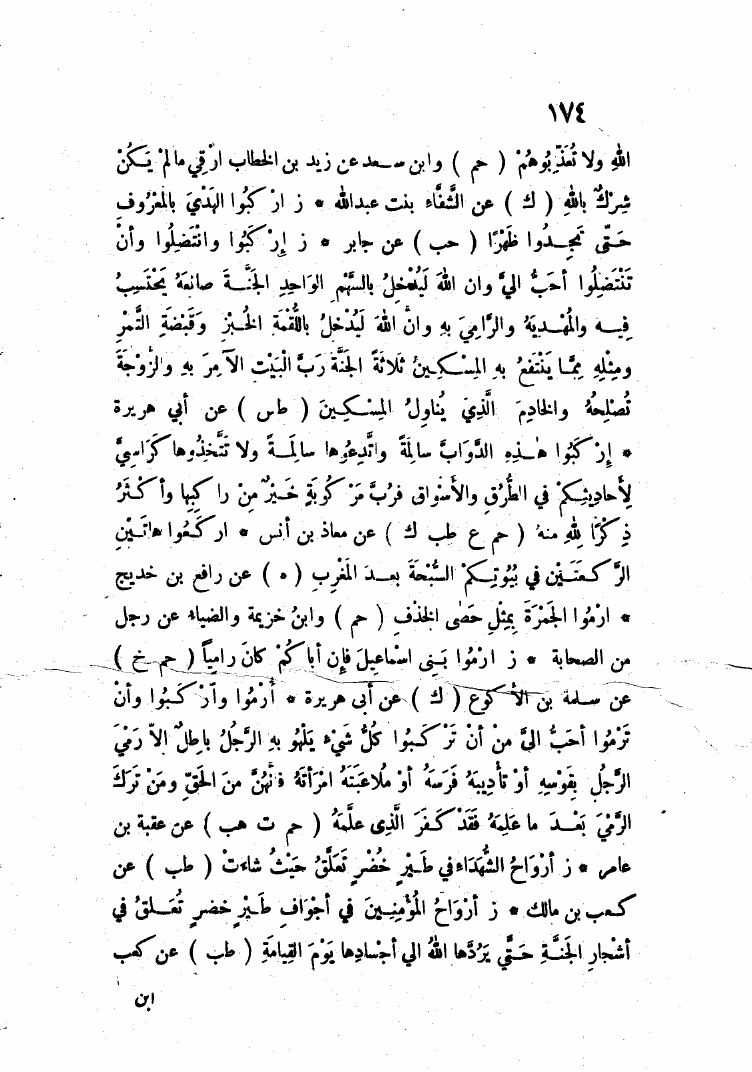 ١٧٤
اللهِ ولا تُعَذِّبُوهُمْ ( حم ) وابن سـعد عن زيد بن الخطاب ارْقِي ما لمْ يَكُنْ
شِرْكٌ باللهِ ( ك ) عن الشَّفَّاءِ بنت عبدالله * ز ارْكَبُوا الهَدْيَ بالمَعْرُوفِ
حَتَّى تَجِـدُوا ظَهْرًا ( حب ) عن جابر * ز إرْكَبُوا وانْتَضِلُوا وأنْ
تَنْتَضِلُوا أحَبُّ اليَّ وان اللهَ لَيُدْخِلُ بالسَّهْمِ الواحِدِ الجَنَّـةَ صانِعَهُ يَحْتَسِبُ
فِيـهِ والمُهْـدِيَهُ والرَّامِيَ بهِ وانَّ اللهَ لَيُدْخِلُ باللُّقْمَةِ الخُبْزِ وقَبْضَةِ التَّمْرِ
ومِثْلِهِ مِمَّـا يَنْتَفِعُ بهِ المِسْـكِـينُ ثَلاثَةً الجَنَّةَ رَبَّ الْبَيْتِ الآمِرَ بهِ والزَّوْجَةَ
تُصْلِحُهُ والخادِمَ الَّذِيَ يُناوِلُ المِسْـكِـينَ ( طس ) عن أبي هريرة
* إرْكَبُوا هـذِهِ الدَّوَابَّ سالِمَةً واتَّدِعُوها سالِمَـةً ولا تَتَّخِذُوها كَرَاسِيَّ
لِأحادِيثِـكُمْ في الطُّرُقِ والأسْوَاقِ فرُبَّ مَرْكُوبَةٍ خَيْرٌ مِنْ راكِبِها وأكْثَرُ
ذِكْرًا لِلهِ منهُ ( حم ع طب ك ) عن معاذ بن أنس * اركَعُوا هاتَـيْنِ
الرَّكْـعَتَـيْنِ في بُيُوتِـكمْ السُّبْحَةَ بعـدَ المَغْربِ ( ه ) عن رافع بن خديج
* ارْمُوا الجَمْرَةَ بِمِثْلِ حَصَى الخذْفِ ( حم ) وابنُ خزيمة والضياء عن رجل
من الصحابة * ز ارْمُوا بَنِي اسْماعِيلَ فإن أباكُمْ كانَ رامِياً ( حم خ )
عن سـلمة بن الأكوع ( ك ) عن أبى هريرة * أرْمُوا وأرْكَـبُوا وأنْ
تَرْمُوا أحَبُّ اليَّ مِنْ أنْ تَرْكَـبُوا كُلُّ شَيْءٍ يَلْهُو بهِ الرَّجُلُ باطِلٌ الاّ رَمْيَ
الرَّجُلِ بِقَوْسِهِ أوْ تأدِيبَهُ فَرَسَهُ أوْ مُلاعَبَتَهُ امْرَأتَهُ فانَّهُنَّ مِنَ الحَقِّ ومَنْ تَرَكَ
الرَّمْيَ بَعْـدَ ما عَلِمَهُ فَقَدْ كَفَرَ الَّذِى عَلَّمَهُ ( حم ت هب ) عن عقبة بن
عامر * ز أرْوَاحُ الشُّهَدَاءِ في طَـيْرٍ خُضْرٍ تَعَلَّقُ حَيْثُ شاءَتْ ( طب ) عن
كـعب بن مالك * ز أرْوَاحُ المُؤْمِنِـينَ في أجْوَافِ طَـيْرٍ خضرٍ تُعَـلقُ في
أشْجارِ الجَنَّـةِ حَتَّي يَرُدَّها اللهُ الي أجْسادِها يَوْمَ القِيامَةِ ( طب ) عن كعب
ابن